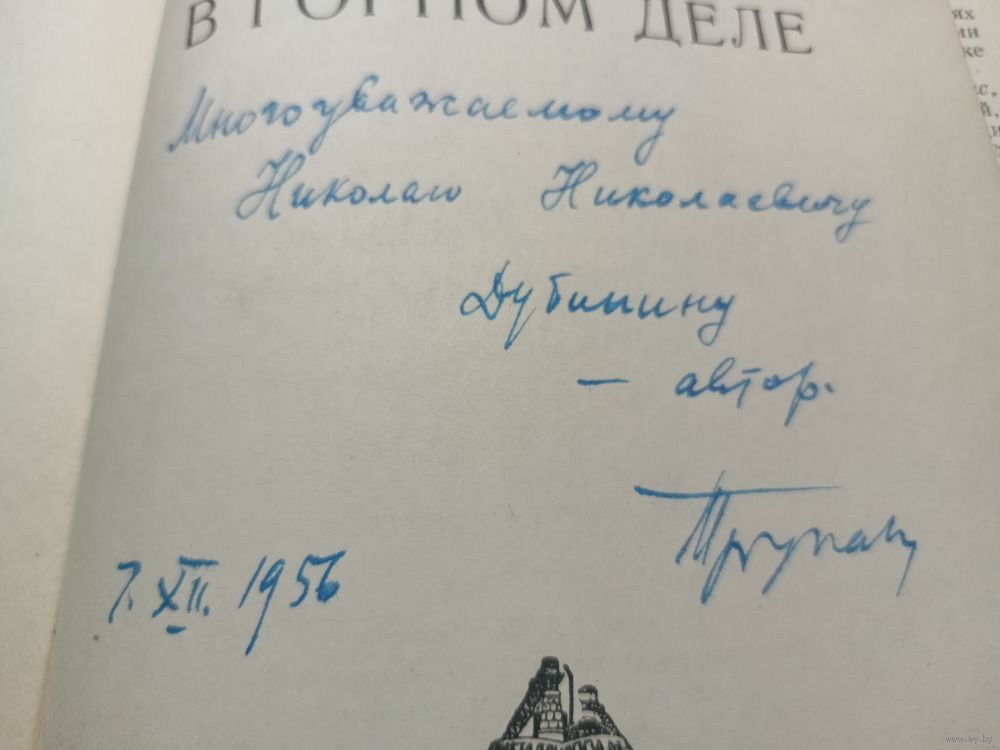 В ГОРНОМ ДЕЛЕ
Многоуважаемому
Николаю Николаевичу
Дубинину
— автор.
7. XII. 1956
www.ay.by